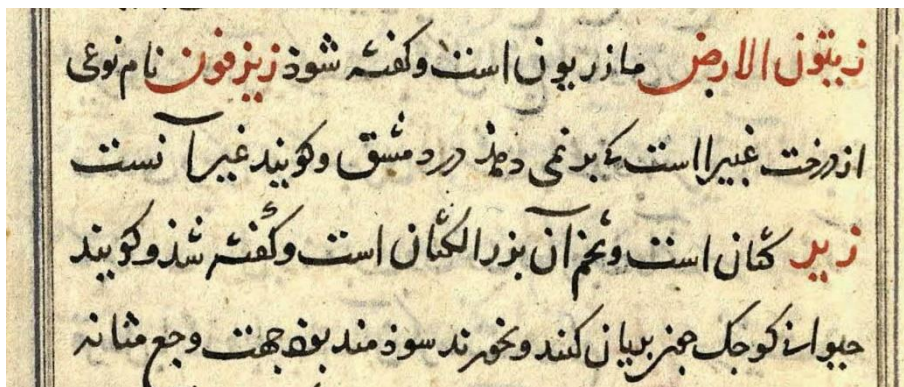 زیتون الارض مازریون است و کفته شوذ زیزفون نام نوعی
از درخت غبیرا است که بر نمی دهذ در دمشق و کویند غیر آنست
زیر کتان است و تخم آن بزر الکتان است و کفته شذ و کویند
حیوانی کوجک جون بریان کنند و بخورند سوذمند بوذ جهت وجع مثانه